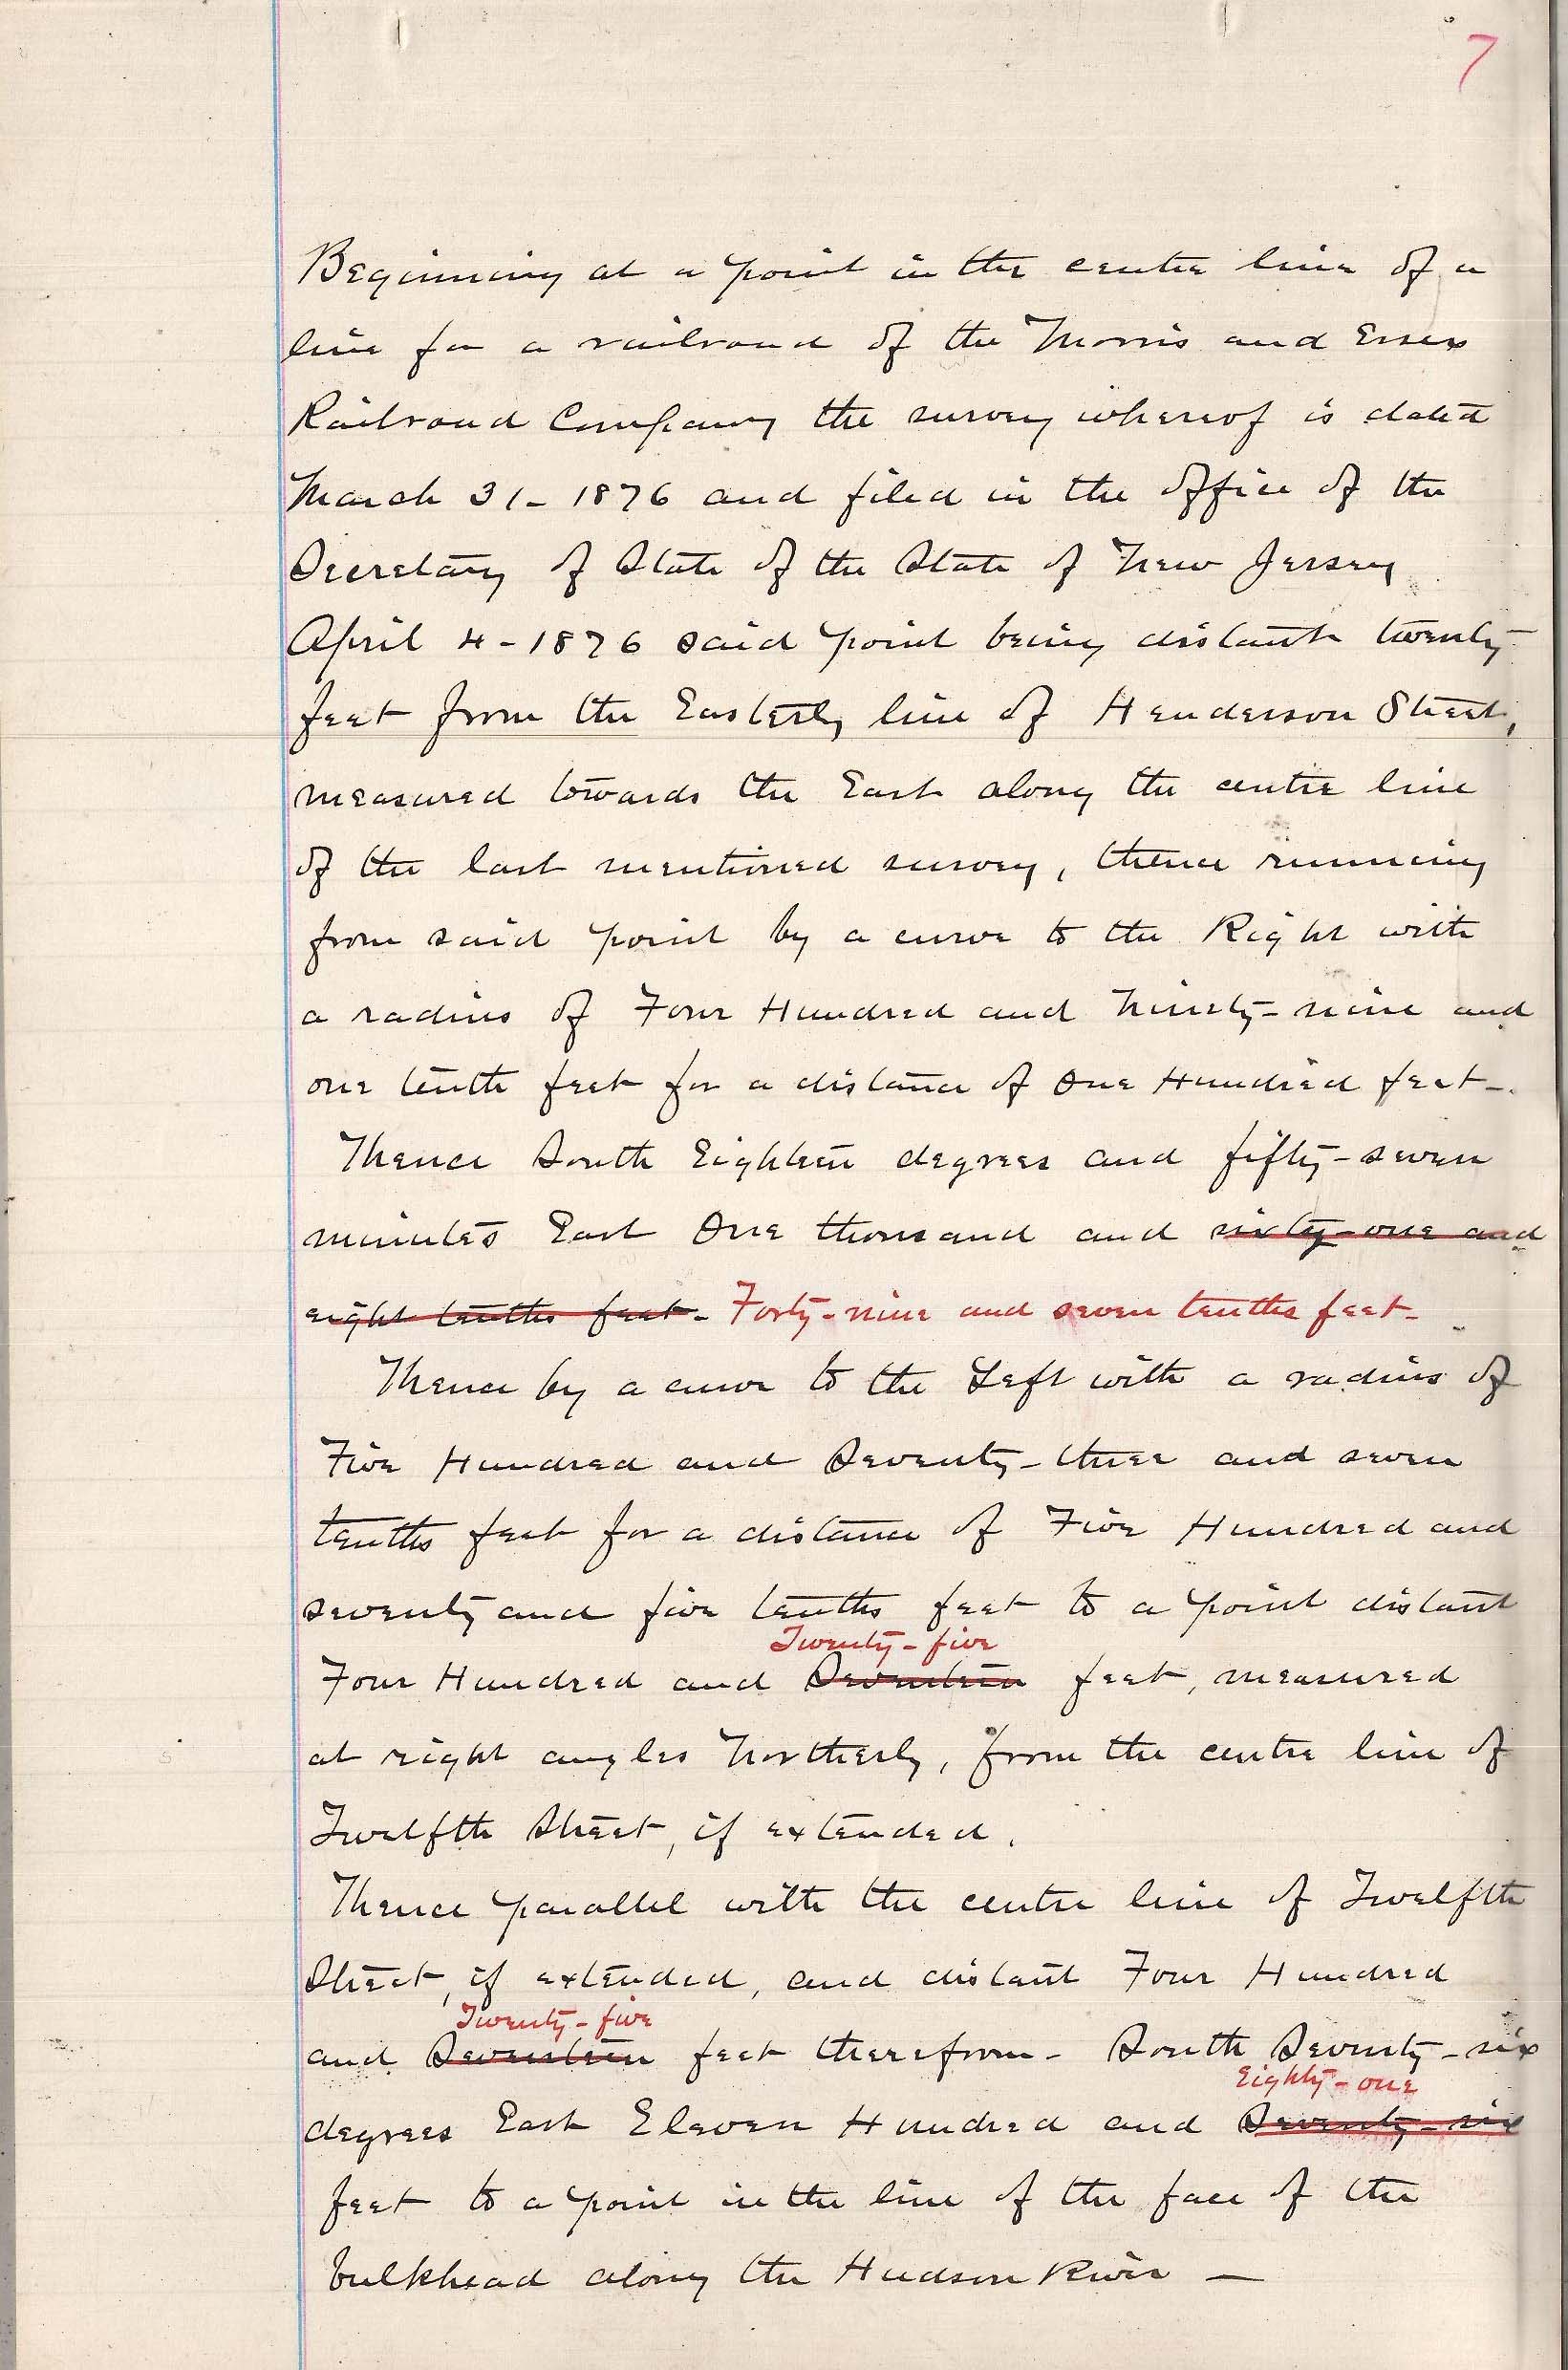 7
Beginning at a point in the centre line of a
line for a railroad of the Morris and Essex
Railroad Company the survey whereof is dated
March 31 - 1876 and filed in the office of the
Secretary of State of the State of New Jersey
April 4 - 1876 said point being distant twenty
feet from the Easterly line of Henderson Street,
measured towards the East along the centre line
of the last mentioned survey, thence running
from said point by a curve to the Right with
a radius of Four Hundred and Ninety-nine and
one tenth feet for a distance of One Hundred feet -.
Thence South Eighteen degrees and fifty-seven
minutes East One thousand and sixty-one and
eight tenths feet - Forty-nine and seven tenths feet -
Thence by a curve to the Left with a radius of
Five Hundred and Seventy-three and seven
tenths feet for a distance of Five Hundred and
seventy and five tenths feet to a point distant
Twenty-five
Four Hundred and Seventeen feet, measured
at right angles Northerly, from the centre line of
Twelfth Street, if extended.
Thence parallel with the centre line of Twelfth
Street, if extended, and distant Four Hundred
Twenty-five
and Seventeen feet therefrom - South Seventy-six
Eighty-one
degrees East Eleven Hundred and Seventy-six
feet to a point in the line of the face of the
bulkhead along the Hudson River —